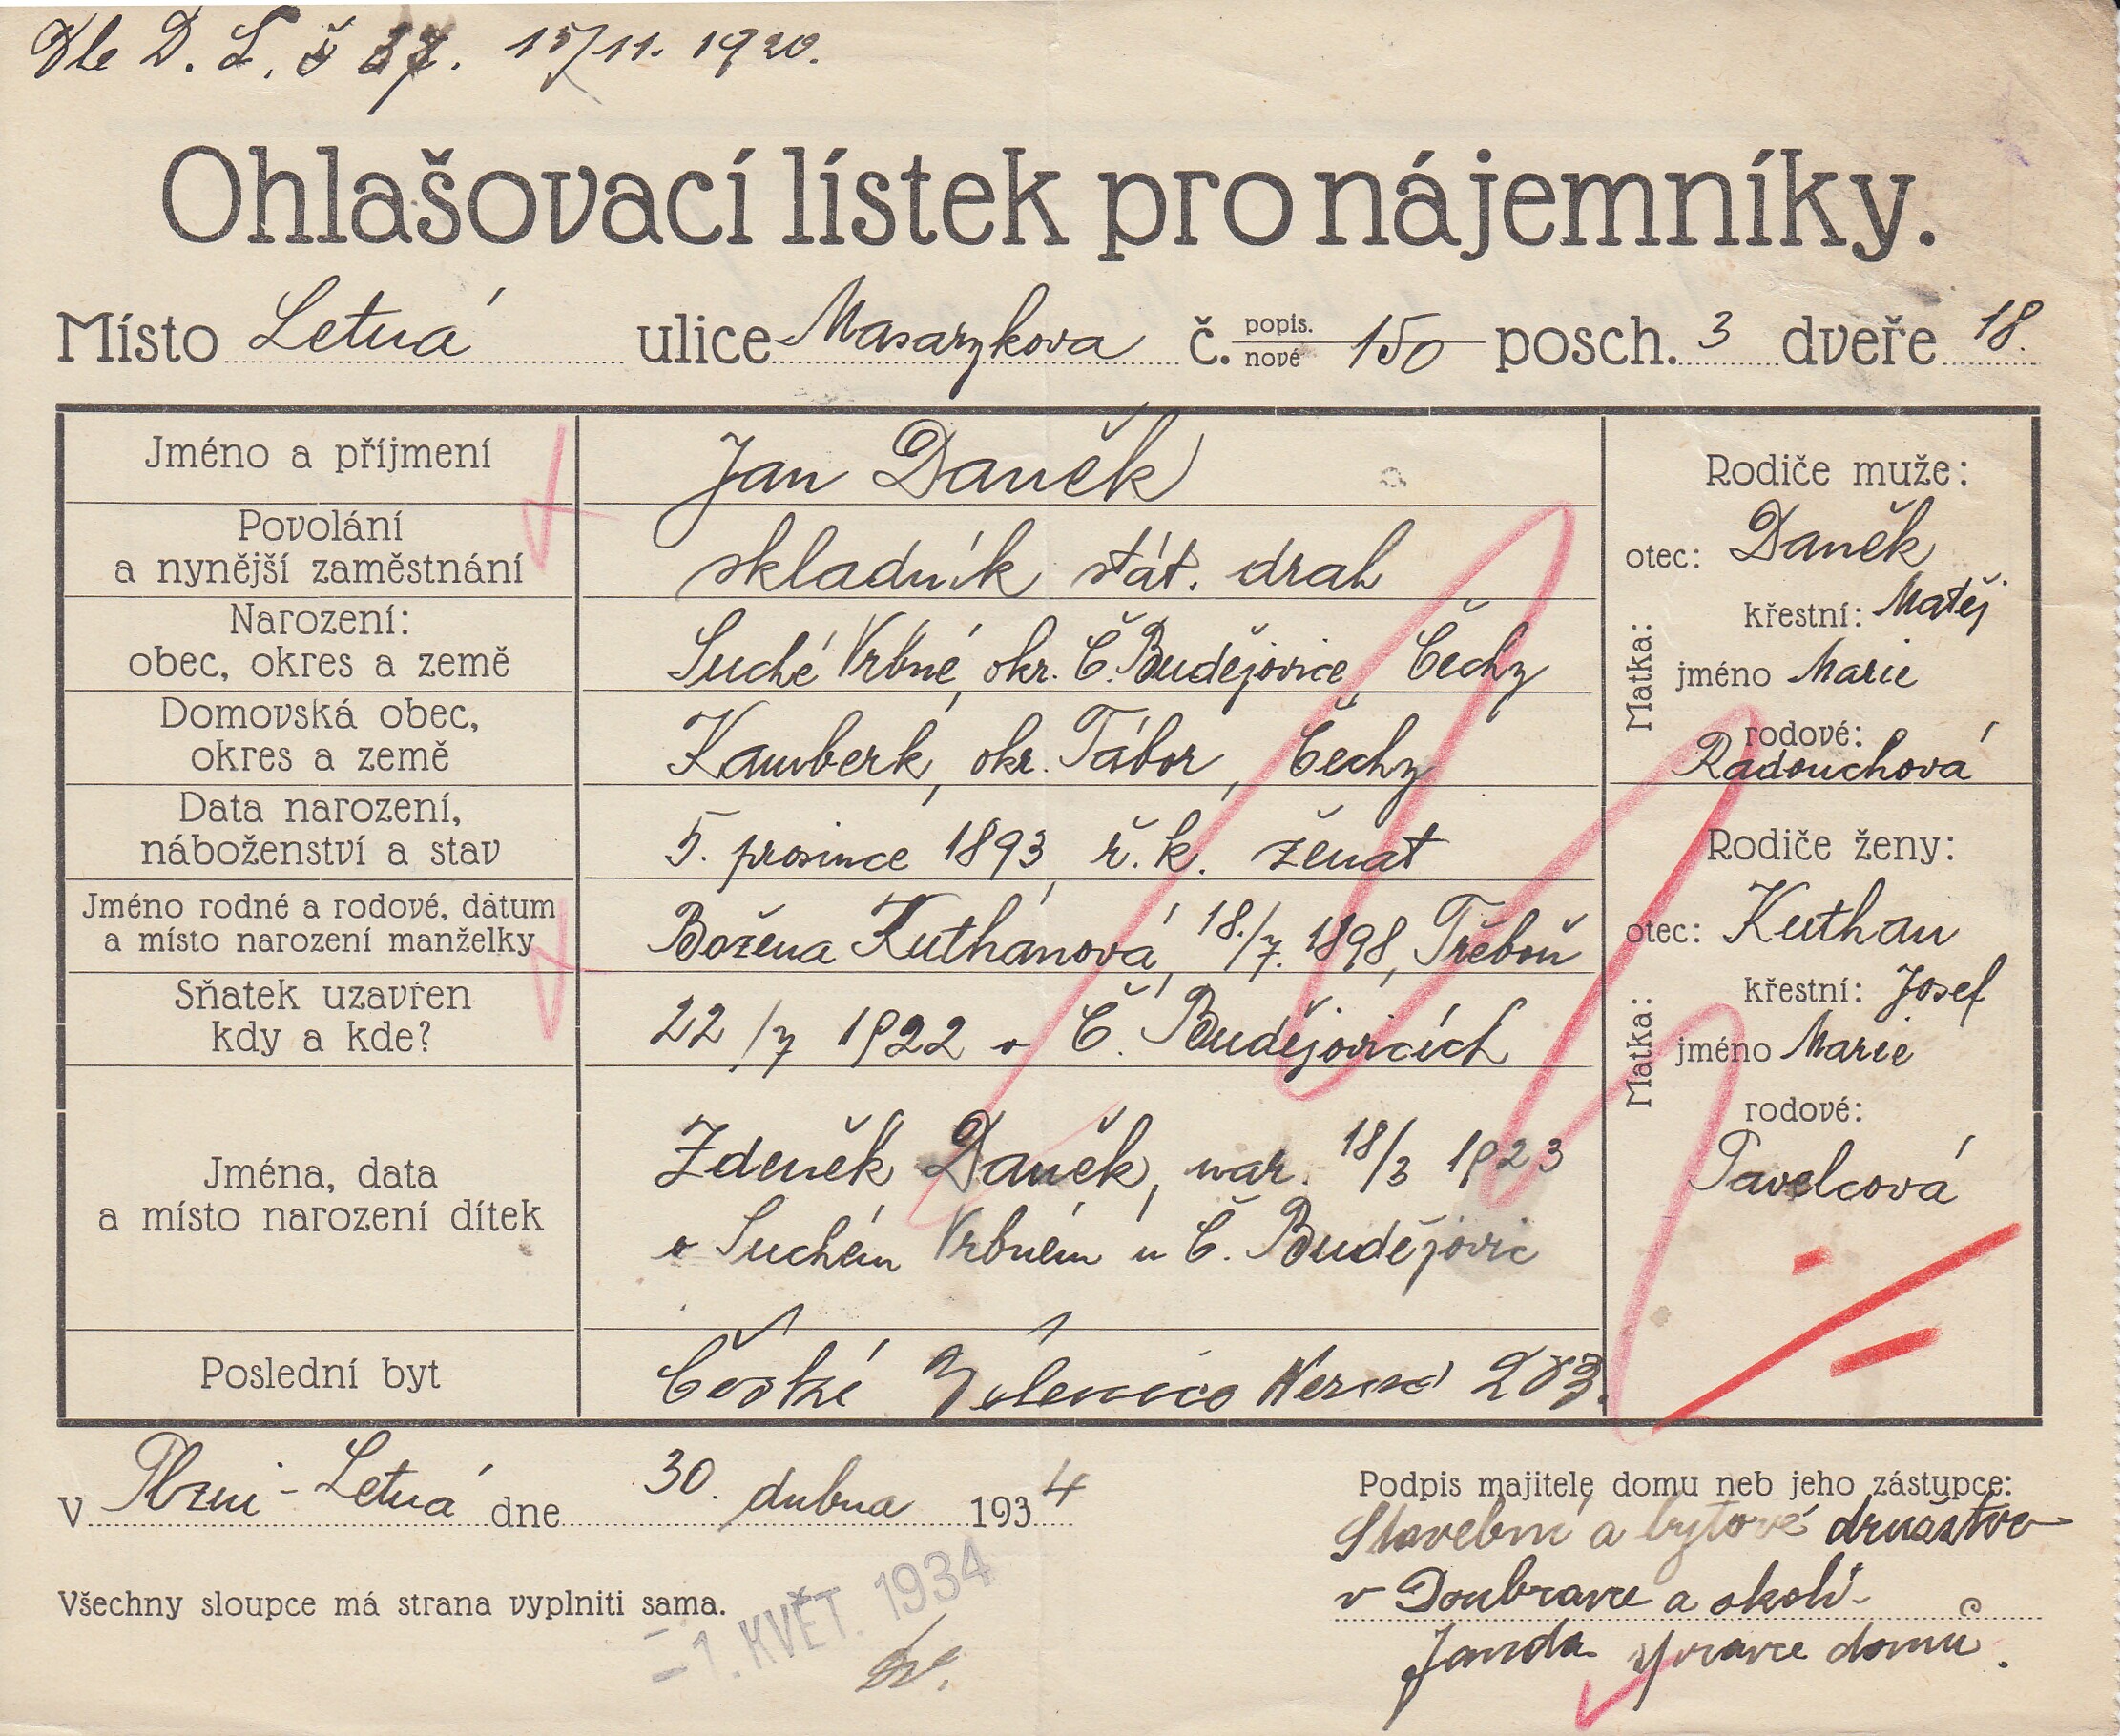 Dle D. L. č 37. 15/11. 1920.
Ohlašovací lístek pro nájemníky.
Místo Letná ulice Masarykova č. popis. nové 150 posch. 3 dveře 18.
Jméno a příjmení
Jan Daněk
Povolání
a nynější zaměstnání
skladník stát. drah
Narození:
obec, okres a země
Suché Vrbné, okr. Č. Budějovice, Čechy
Domovská obec,
okres a země
Kamberk, okr. Tábor, Čechy
Data narození,
náboženství a stav
5. prosince 1893, ř. k. ženat
Jméno rodné a rodové, datum
a místo narození manželky
Božena Kuthanová, 18./7. 1898, Třeboň
Sňatek uzavřen
kdy a kde?
22/7 1922 v Č. Budějovicích
Jména, data
a místo narození dítek
Zdeněk Daněk, nar. 18/3 1923
v Suchém Vrbném u Č. Budějovic
Poslední byt
České 283.
Rodiče muže:
otec: Daněk
křestní: Matěj
Matka:
jméno Marie
rodové:
Radouchová
Rodiče ženy:
otec: Kuthan
křestní: Josef
Matka:
jméno Marie
rodové:
Pavelcová
v Plzni - Letná dne 30. dubna 1934
Všechny sloupce má strana vyplniti sama.
- 1. KVĚT. 1934
Podpis majitele domu neb jeho zástupce:
Stavební a bytové družstvo
v Doubravce a okolí
Janda správce domů.